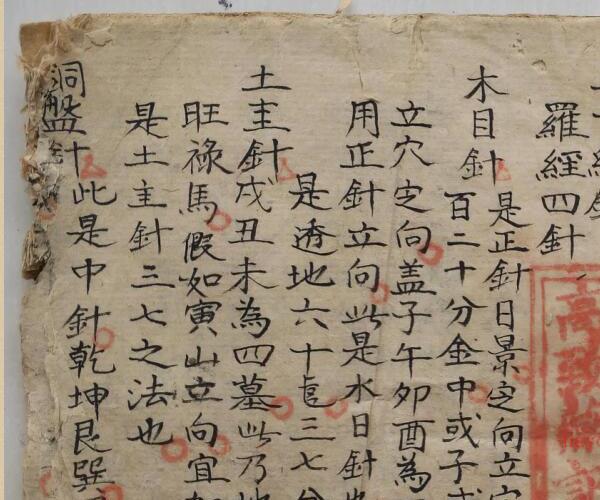 羅經四針
木目針是正針日景定向立
百二十分金中或子
立穴定向盖子午卯酉為
用正針立向此是水日針
是透地六十三七
土主針戌丑未為四墓此乃
旺祿馬假如寅山立向宜
是土主針三七之法也
洞盤針此是中針乾坤艮巽